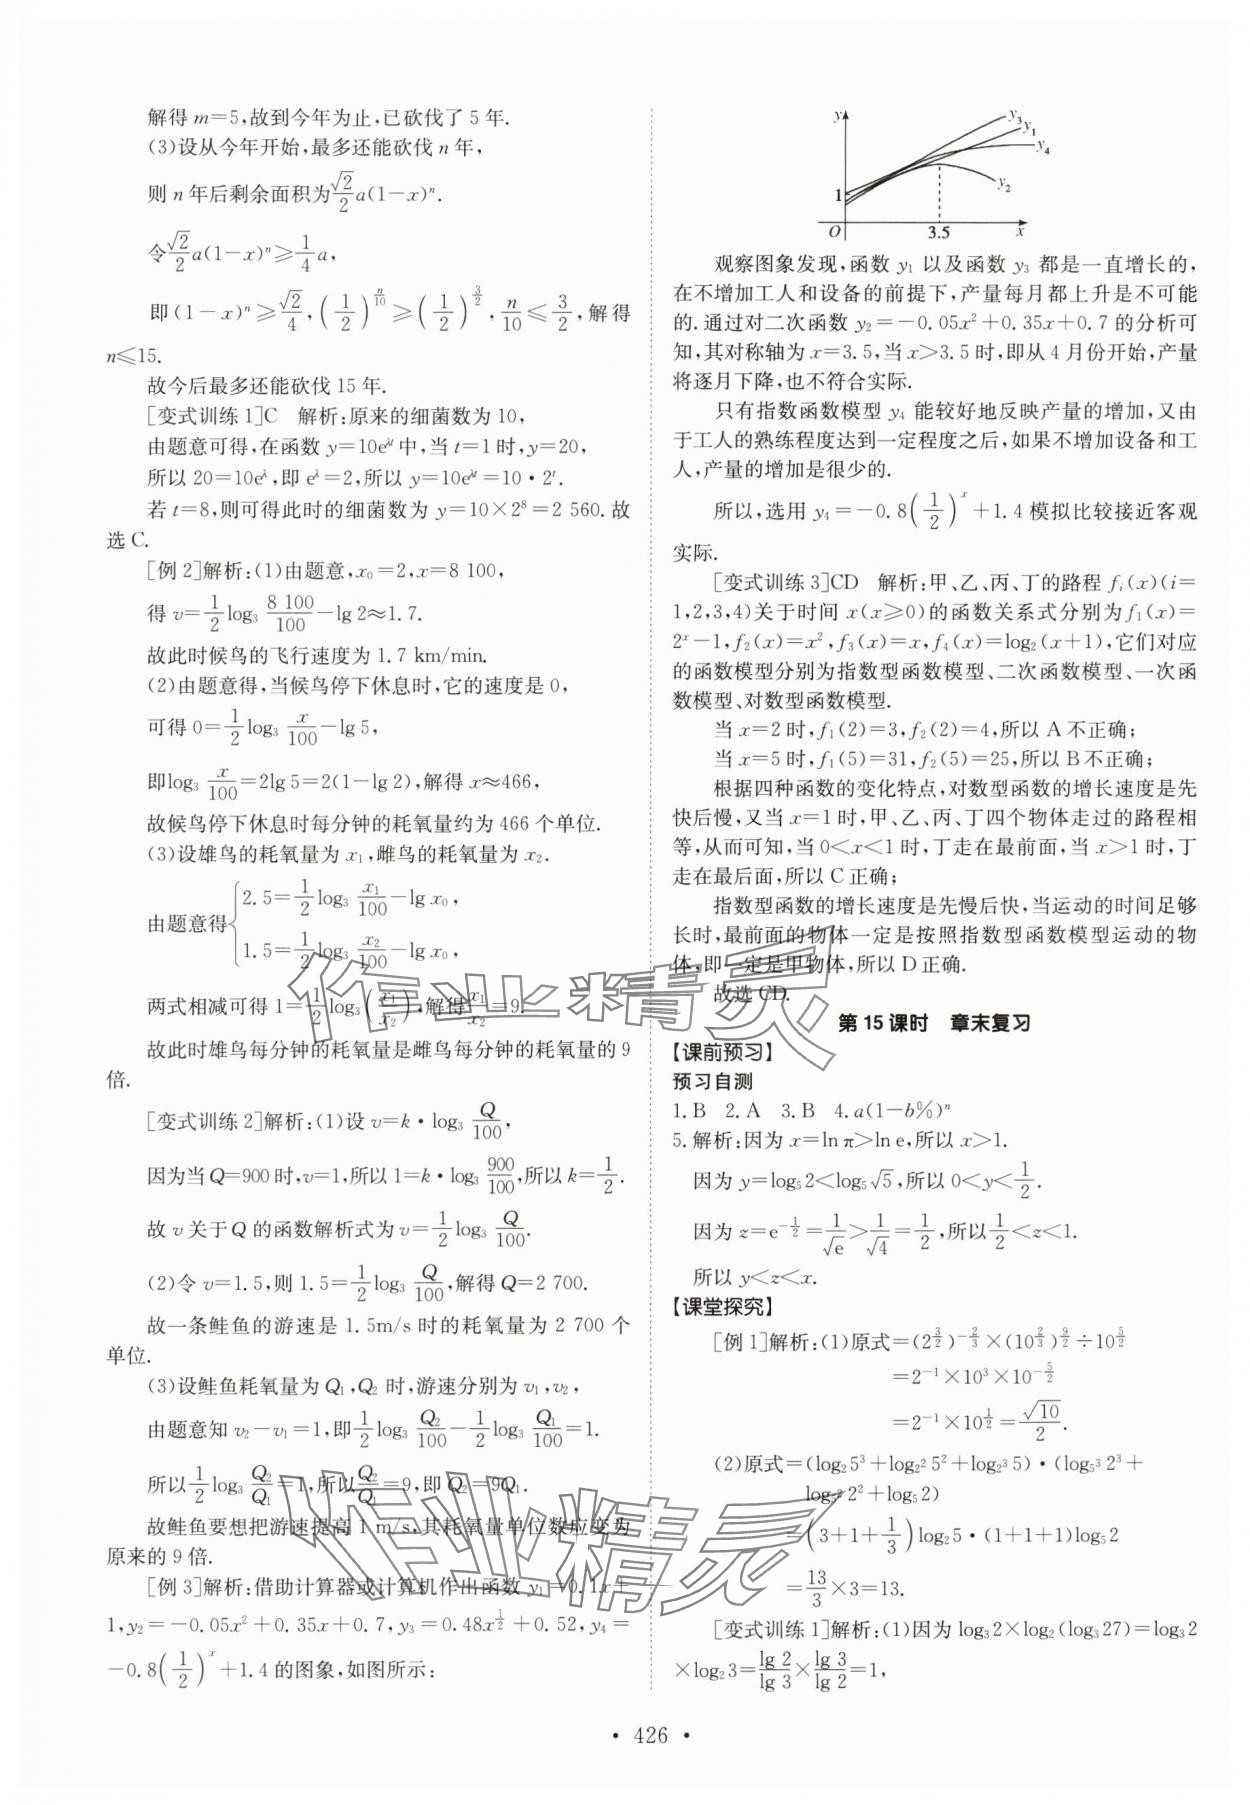 解得 m=5,故到今年为止,已砍伐了 5 年.
(3)设从今年开始,最多还能砍伐 n 年,
则 n 年后剩余面积为$\frac{\sqrt{2}}{2}a(1-x)^n$.
令$\frac{\sqrt{2}}{2}a(1-x)^n≥\frac{1}{4}a$,
即$(1-x)^n≥\frac{\sqrt{2}}{4}$,$(\frac{1}{2})^{\frac{n}{10}}≥(\frac{1}{2})^{\frac{3}{2}}$,$\frac{n}{10}≤\frac{3}{2}$,解得
n≤15.
故今后最多还能砍伐 15 年.
[变式训练 1]C 解析:原来的细菌数为 10,
由题意可得,在函数 $y=10e^{λt}$ 中,当 t=1 时,y=20,
所以 $20=10e^λ$,即 $e^λ=2$,所以 $y=10e^{λt}=10·2^t$.
若 t=8,则可得此时的细菌数为 $y=10×2^8=2 560$.故
选 C.
[例 2]解析:(1)由题意,$x_0=2$,x=8 100,
得 $v=\frac{1}{2}\log_3\frac{8 100}{100}-\lg 2≈1.7$.
故此时候鸟的飞行速度为 1.7 km/min.
(2)由题意得,当候鸟停下休息时,它的速度是 0,
可得 $0=\frac{1}{2}\log_3\frac{x}{100}-\lg 5$,
即$\log_3\frac{x}{100}=2\lg 5=2(1-\lg 2)$,解得 x≈466,
故候鸟停下休息时每分钟的耗氧量约为 466 个单位.
(3)设雄鸟的耗氧量为 $x_1$,雌鸟的耗氧量为 $x_2$.
由题意得$\begin{cases}2.5=\frac{1}{2}\log_3\frac{x_1}{100}-\lg x_0,\\1.5=\frac{1}{2}\log_3\frac{x_2}{100}-\lg x_0,\end{cases}$
两式相减可得 $1=\frac{1}{2}\log_3(\frac{x_1}{x_2})$,解得$\frac{x_1}{x_2}=9$.
故此时雄鸟每分钟的耗氧量是雌鸟每分钟的耗氧量的 9
倍.
[变式训练 2]解析:(1)设 $v=k·\log_3\frac{Q}{100}$,
因为当 Q=900 时,v=1,所以 $1=k·\log_3\frac{900}{100}$,所以 $k=\frac{1}{2}$.
故 v 关于 Q 的函数解析式为 $v=\frac{1}{2}\log_3\frac{Q}{100}$.
(2)令 v=1.5,则 $1.5=\frac{1}{2}\log_3\frac{Q}{100}$,解得 Q=2 700.
故一条鲑鱼的游速是 1.5m/s 时的耗氧量为 2 700 个
单位.
(3)设鲑鱼耗氧量为 $Q_1$,$Q_2$ 时,游速分别为 $v_1$,$v_2$,
由题意知 $v_2-v_1=1$,即$\frac{1}{2}\log_3\frac{Q_2}{100}-\frac{1}{2}\log_3\frac{Q_1}{100}=1$.
所以$\frac{1}{2}\log_3\frac{Q_2}{Q_1}=1$,所以$\frac{Q_2}{Q_1}=9$,即 $Q_2=9Q_1$.
故鲑鱼要想把游速提高 1 m/s,其耗氧量单位数应变为
原来的 9 倍.
[例 3]解析:借助计算器或计算机作出函数 $y_1=0.1x+$
1,$y_2=-0.05x^2+0.35x+0.7$,$y_3=0.48x^{\frac{1}{2}}+0.52$,$y_4=$
$-0.8(\frac{1}{2})^x+1.4$ 的图象,如图所示:
y
$y_3$
$y_1$
$y_4$
$y_2$
1
O 3.5 x
观察图象发现,函数 $y_1$ 以及函数 $y_3$ 都是一直增长的,
在不增加工人和设备的前提下,产量每月都上升是不可能
的.通过对二次函数 $y_2=-0.05x^2+0.35x+0.7$ 的分析可
知,其对称轴为 x=3.5,当 x>3.5 时,即从 4 月份开始,产量
将逐月下降,也不符合实际.
只有指数函数模型 $y_4$ 能较好地反映产量的增加,又由
于工人的熟练程度达到一定程度之后,如果不增加设备和工
人,产量的增加是很少的.
所以,选用 $y_4=-0.8(\frac{1}{2})^x+1.4$ 模拟比较接近客观
实际.
[变式训练 3]CD 解析:甲、乙、丙、丁的路程 $f_i(x)$(i=
1,2,3,4)关于时间 x(x≥0)的函数关系式分别为 $f_1(x)=$
$2^x-1$,$f_2(x)=x^2$,$f_3(x)=x$,$f_4(x)=\log_2(x+1)$,它们对应
的函数模型分别为指数型函数模型、二次函数模型、一次函
数模型、对数型函数模型.
当 x=2 时,$f_1(2)=3$,$f_2(2)=4$,所以 A 不正确;
当 x=5 时,$f_1(5)=31$,$f_2(5)=25$,所以 B 不正确;
根据四种函数的变化特点,对数型函数的增长速度是先
快后慢,又当 x=1 时,甲、乙、丙、丁四个物体走过的路程相
等,从而可知,当 0<x<1 时,丁走在最前面,当 x>1 时,丁
走在最后面,所以 C 正确;
指数型函数的增长速度是先慢后快,当运动的时间足够
长时,最前面的物体一定是按照指数型函数模型运动的物
体,即一定是甲物体,所以 D 正确.
故选 CD.
第 15 课时 章末复习
【课前预习】
预习自测
1. B 2. A 3. B 4. $a(1-b\%)^n$
5. 解析:因为 x=ln π>ln e,所以 x>1.
因为 $y=\log_5 2<\log_5\sqrt{5}$,所以 $0<y<\frac{1}{2}$.
因为 $z=e^{-\frac{1}{2}}=\frac{1}{\sqrt{e}}>\frac{1}{\sqrt{4}}=\frac{1}{2}$,所以$\frac{1}{2}<z<1$.
所以 y<z<x.
【课堂探究】
[例 1]解析:(1)原式=$(2^{\frac{3}{2}})^{-\frac{2}{3}}×(10^{\frac{2}{3}})^{\frac{9}{2}}÷10^{\frac{5}{2}}$
$=2^{-1}×10^3×10^{-\frac{5}{2}}$
$=2^{-1}×10^{\frac{1}{2}}=\frac{\sqrt{10}}{2}$.
(2)原式=$(\log_2 5^3+\log_{2^2} 5^2+\log_{2^3} 5)·(\log_{5^3} 2^3+$
$\log_{5^2} 2^2+\log_5 2)$
$=(3+1+\frac{1}{3})\log_2 5·(1+1+1)\log_5 2$
$=\frac{13}{3}×3=13$.
[变式训练 1]解析:(1)因为 $\log_3 2×\log_2(\log_3 27)=\log_3 2$
$×\log_2 3=\frac{\lg 2}{\lg 3}×\frac{\lg 3}{\lg 2}=1$,
· 426 ·
作业精灵
作业精灵